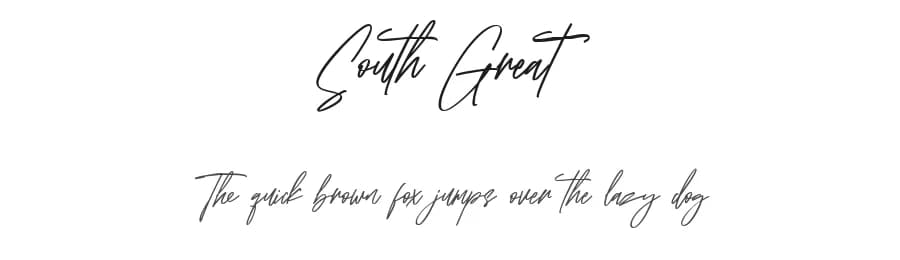 South Great
The quick brown fox jumps over the lazy dog